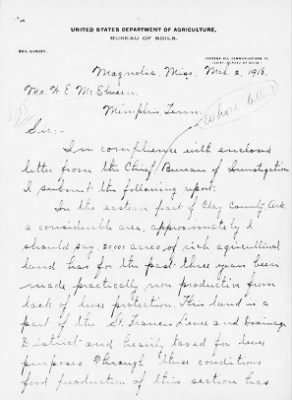 UNITED STATES DEPARTMENT OF AGRICULTURE,
BUREAU OF SOILS.
SOIL SURVEY.
ADDRESS ALL COMMUNICATIONS TO
CHIEF, BUREAU OF SOILS.
Magnolia, Miss. Mch. 2, 1918.
Mr. W. E. McElveen
Memphis Tenn.
Sir:-
In compliance with enclosed
letter from the Chief Bureau of Investigation
I submit the following report:
In the eastern part of Clay County Ark
a considerable area, approximately I
should say 20,000 acres of rich agricultural
land has for the past three years been
made practically non productive from
lack of levee protection. This land is a
part of the St. Francis Levee and Drainage
District and heavily taxed for levee
purposes. Through these conditions
food production of this section has